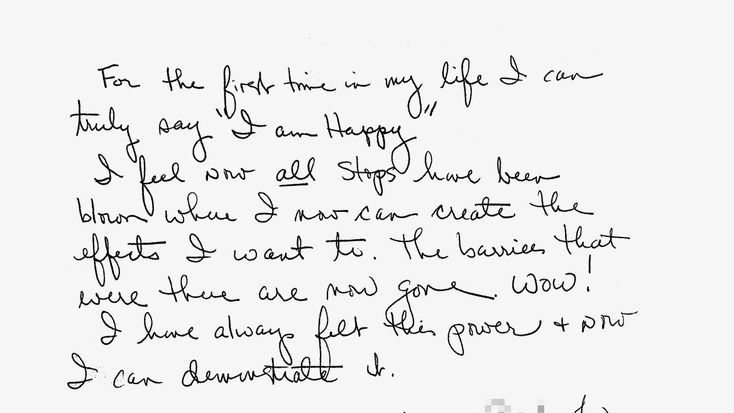 For the first time in my life I can
truly say "I am Happy"
I feel now all stops have been
blown where I now can create the
effects I want to. The barries that
were there are now gone. Wow!
I have always felt this power + now
I can demonstrate it.